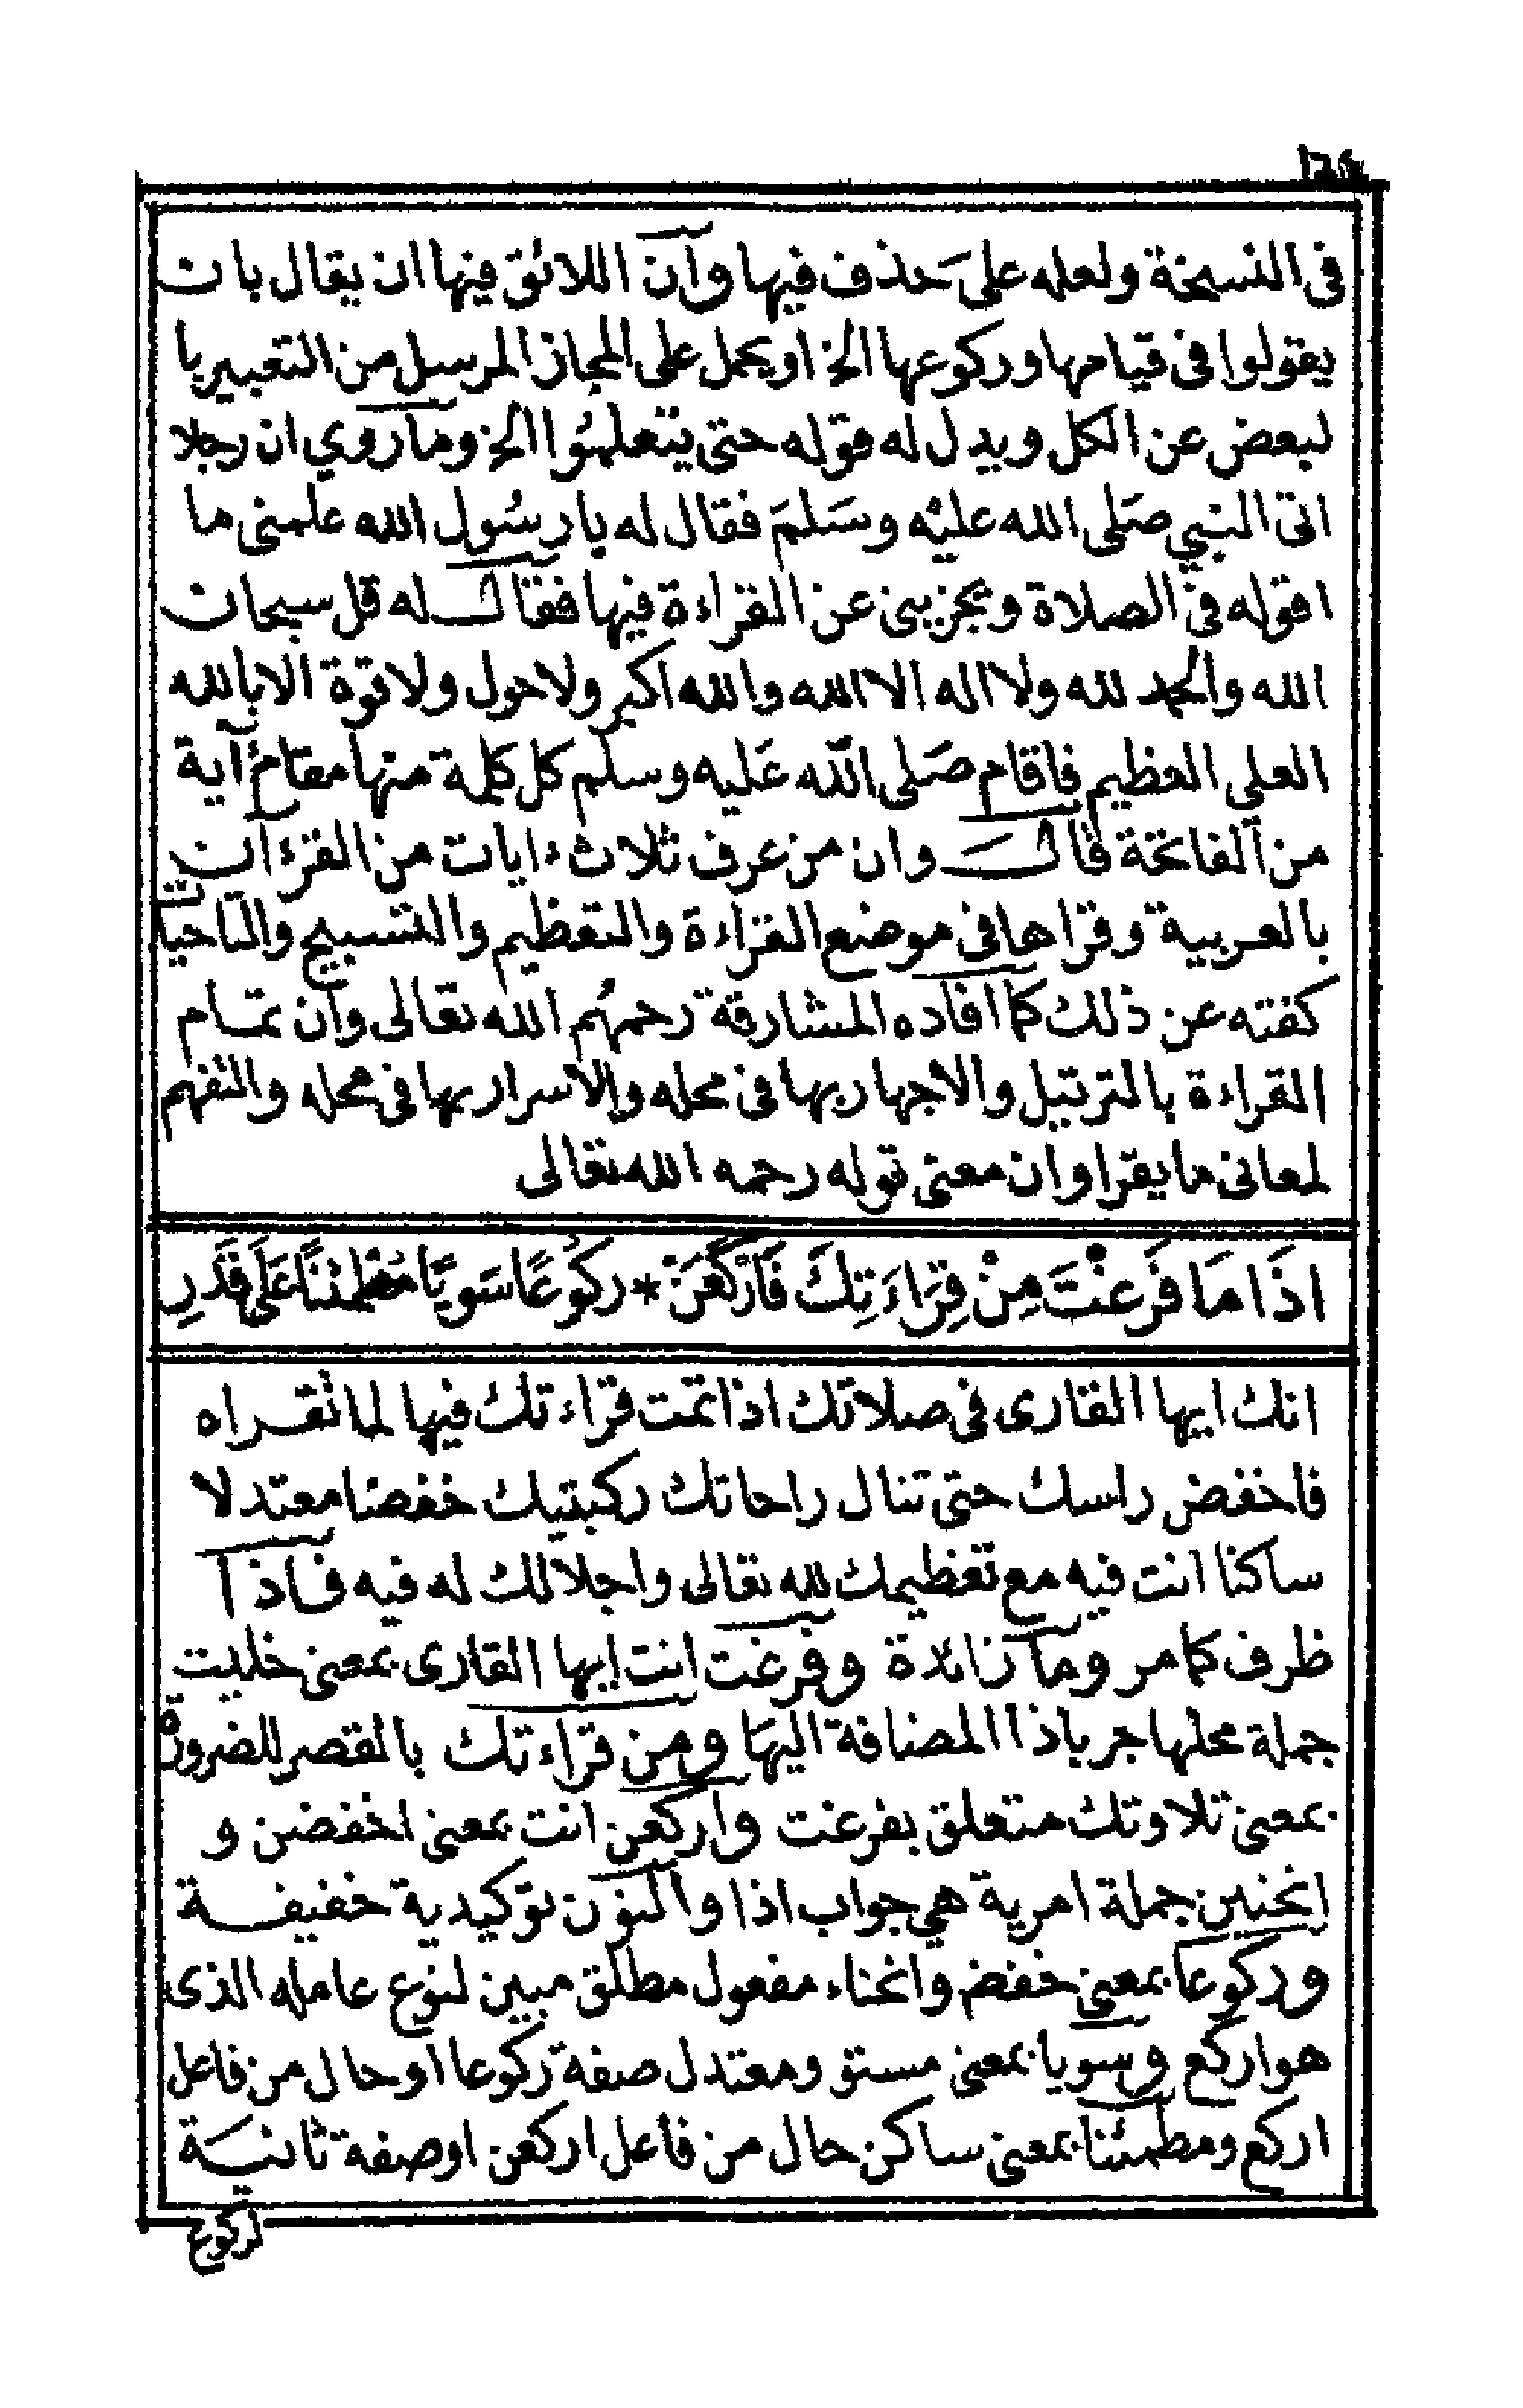 في النسخة ولعله على حذف فيها وان اللائق فيها ان يقال بان
يقولوا في قيامها وركوعها الخ او يحمل على المجاز المرسل من التعبير با
لبعض عن الكل ويدل له قوله حتى يتعلموا الخ وما روي ان رجلا
اتى النبي صَلى الله عليْه وسَلمَ فقال له يا رسُول الله علمنى ما
اقوله في الصلاة ويجزيني عن القراءة فيها فقال له قل سبحان
الله والحمد لله ولا اله الا الله والله اكبر ولا حول ولا قوة الا بالله
العلي العظيم فاقام صَلى الله عَليه وسلم كل كلمة منها مقام آية
من الفاتحة قال وان من عرف ثلاث ءايات من القرءان
بالعربية وقراها في موضع القراءة والتعظيم والتسبيح والتاحيات
كفته عن ذلك كما افاده المشارقة رحمهُم الله تعالى وان تمام
القراءة بالترتيل والاجهار بها في محله والاسرار بها في محله والتفهم
لمعانى ما يقرا وان معنى قوله رحمه الله تعالى
اذَا مَا فَرَغْتَ مِنْ قِرَاءَتِكَ فَارْكَعَنْ * ركُوعًا سَوِيًّا مُطْمئنًّا عَلَى قَدْرِ
انك ايها القارى في صلاتك اذا تمت قراءتك فيها لما تقراه
فاخفض راسك حتى تنال راحاتك ركبتيك خفضا معتدلا
ساكنا انت فيه مع تعظيمك لله تعالى واجلالك له فيه فاذا
ظرف كما مر وما زائدة وفرغت انت ايها القارى بمعنى خليت
جملة محلها جر باذا المضافة اليها ومن قراءتك بالقصر للضرورة
بمعنى تلاوتك متعلق بفرغت واركعن انت بمعنى اخفضن و
انحنين جملة امرية هي جواب اذا والنون توكيدية خفيفة
وركوعا بمعنى خفض وانحناء مفعول مطلق مبين لنوع عامله الذى
هو اركع وسويا بمعنى مستو ومعتدل صفة ركوعا او حال من فاعل
اركع ومطمئنا بمعنى ساكن حال من فاعل اركعن او صفة ثانية
لركوع